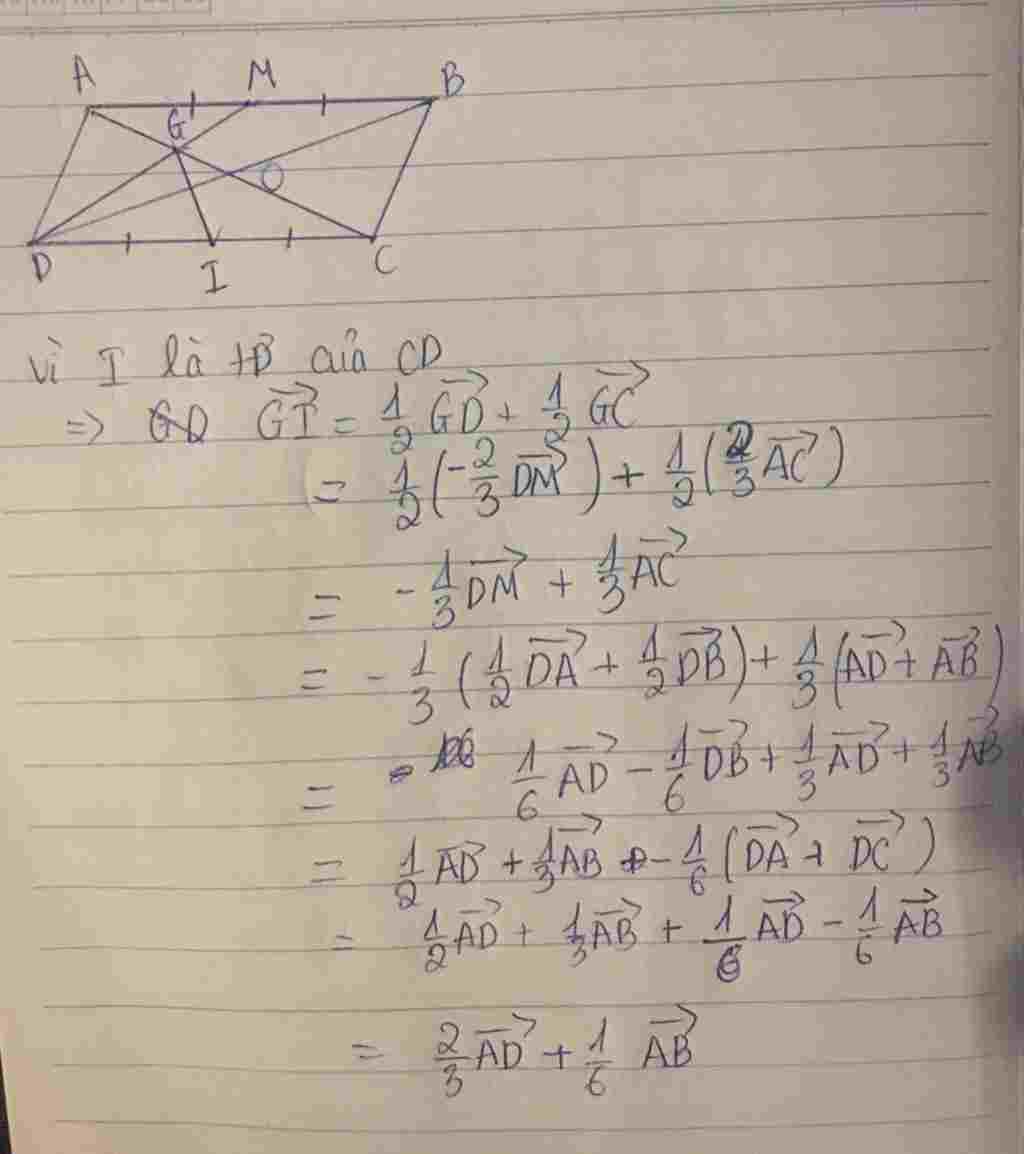 A M B
G
O
D I C
vì I là tĐ của CD
=> GI→ = 1/2 GD→ + 1/2 GC→
= 1/2 (-2/3 DM→) + 1/2 (2/3 AC→)
= -1/3 DM→ + 1/3 AC→
= -1/3 (1/2 DA→ + 1/2 DB→) + 1/3 (AD→ + AB→)
= 1/6 AD→ - 1/6 DB→ + 1/3 AD→ + 1/3 AB→
= 1/2 AD→ + 1/3 AB→ - 1/6 (DA→ + DC→)
= 1/2 AD→ + 1/3 AB→ + 1/6 AD→ - 1/6 AB→
= 2/3 AD→ + 1/6 AB→